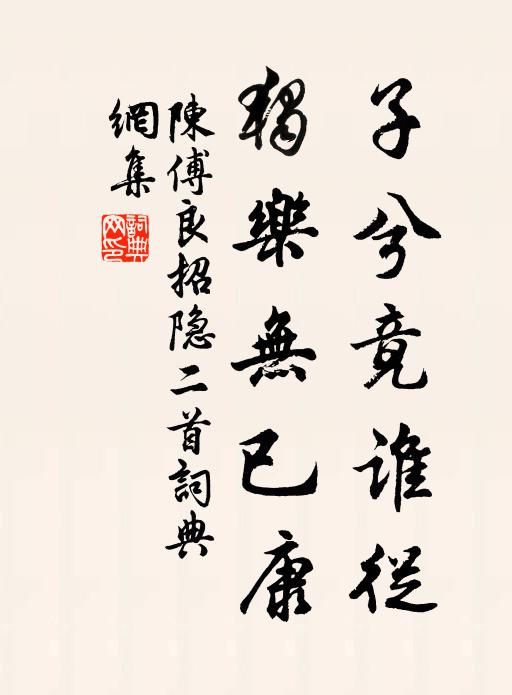 子兮竟誰從
獨樂無已康
陳傅良招隐二首詞典
網集
詞典
网印